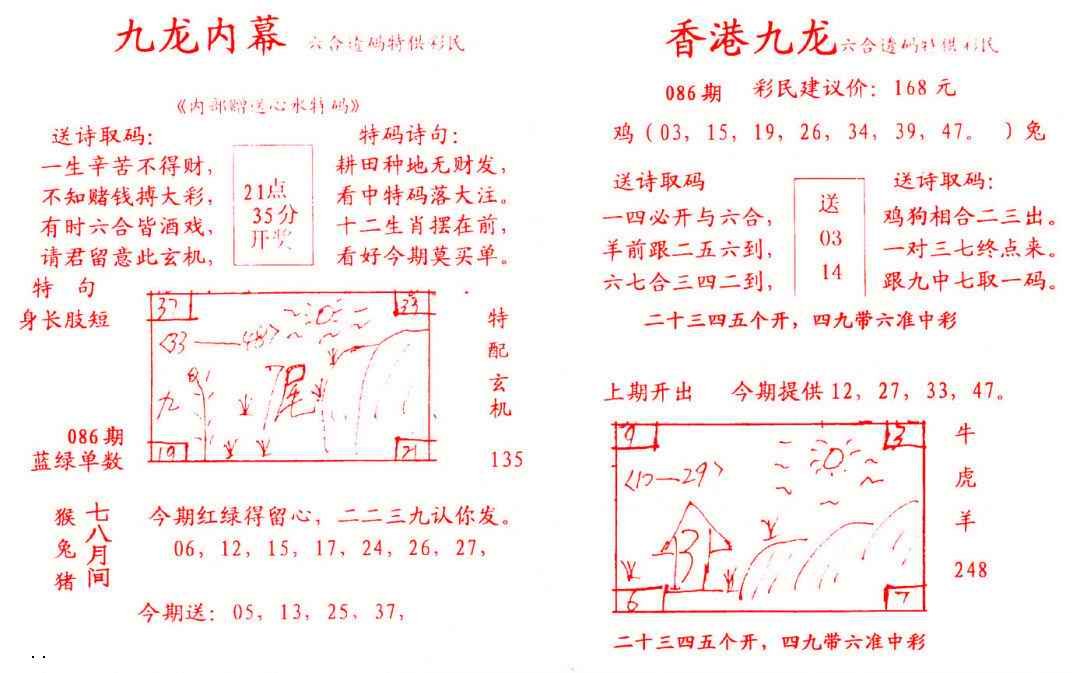 九龙内幕 六合透码特供彩民
《内部赠送心水特码》
送诗取码：
一生辛苦不得财，
不知赌钱搏大彩，
有时六合皆酒戏，
请君留意此玄机，
21点
35分
开奖
特码诗句：
耕田种地无财发，
看中特码落大注。
十二生肖摆在前，
看好今期莫买单。
特 句
身长肢短
37
33
〈33——48〉
九
尾
19
21
特
配
玄
机
135
086期
蓝绿单数
猴
兔
猪
七八月间
今期红绿得留心，二二三九认你发。
06，12，15，17，24，26，27，
今期送：05，13，25，37，
香港九龙 六合透码特供彩民
086期 彩民建议价：168元
鸡（03，15，19，26，34，39，47。 ）兔
送诗取码
一四必开与六合，
羊前跟二五六到，
六七合三四二到，
送
03
14
送诗取码：
鸡狗相合二三出。
一对三七终点来。
跟九中七取一码。
二十三四五个开，四九带六准中彩
上期开出 今期提供12，27，33，47。
9
3
〈17—29〉
3
6
7
牛
虎
羊
248
二十三四五个开，四九带六准中彩